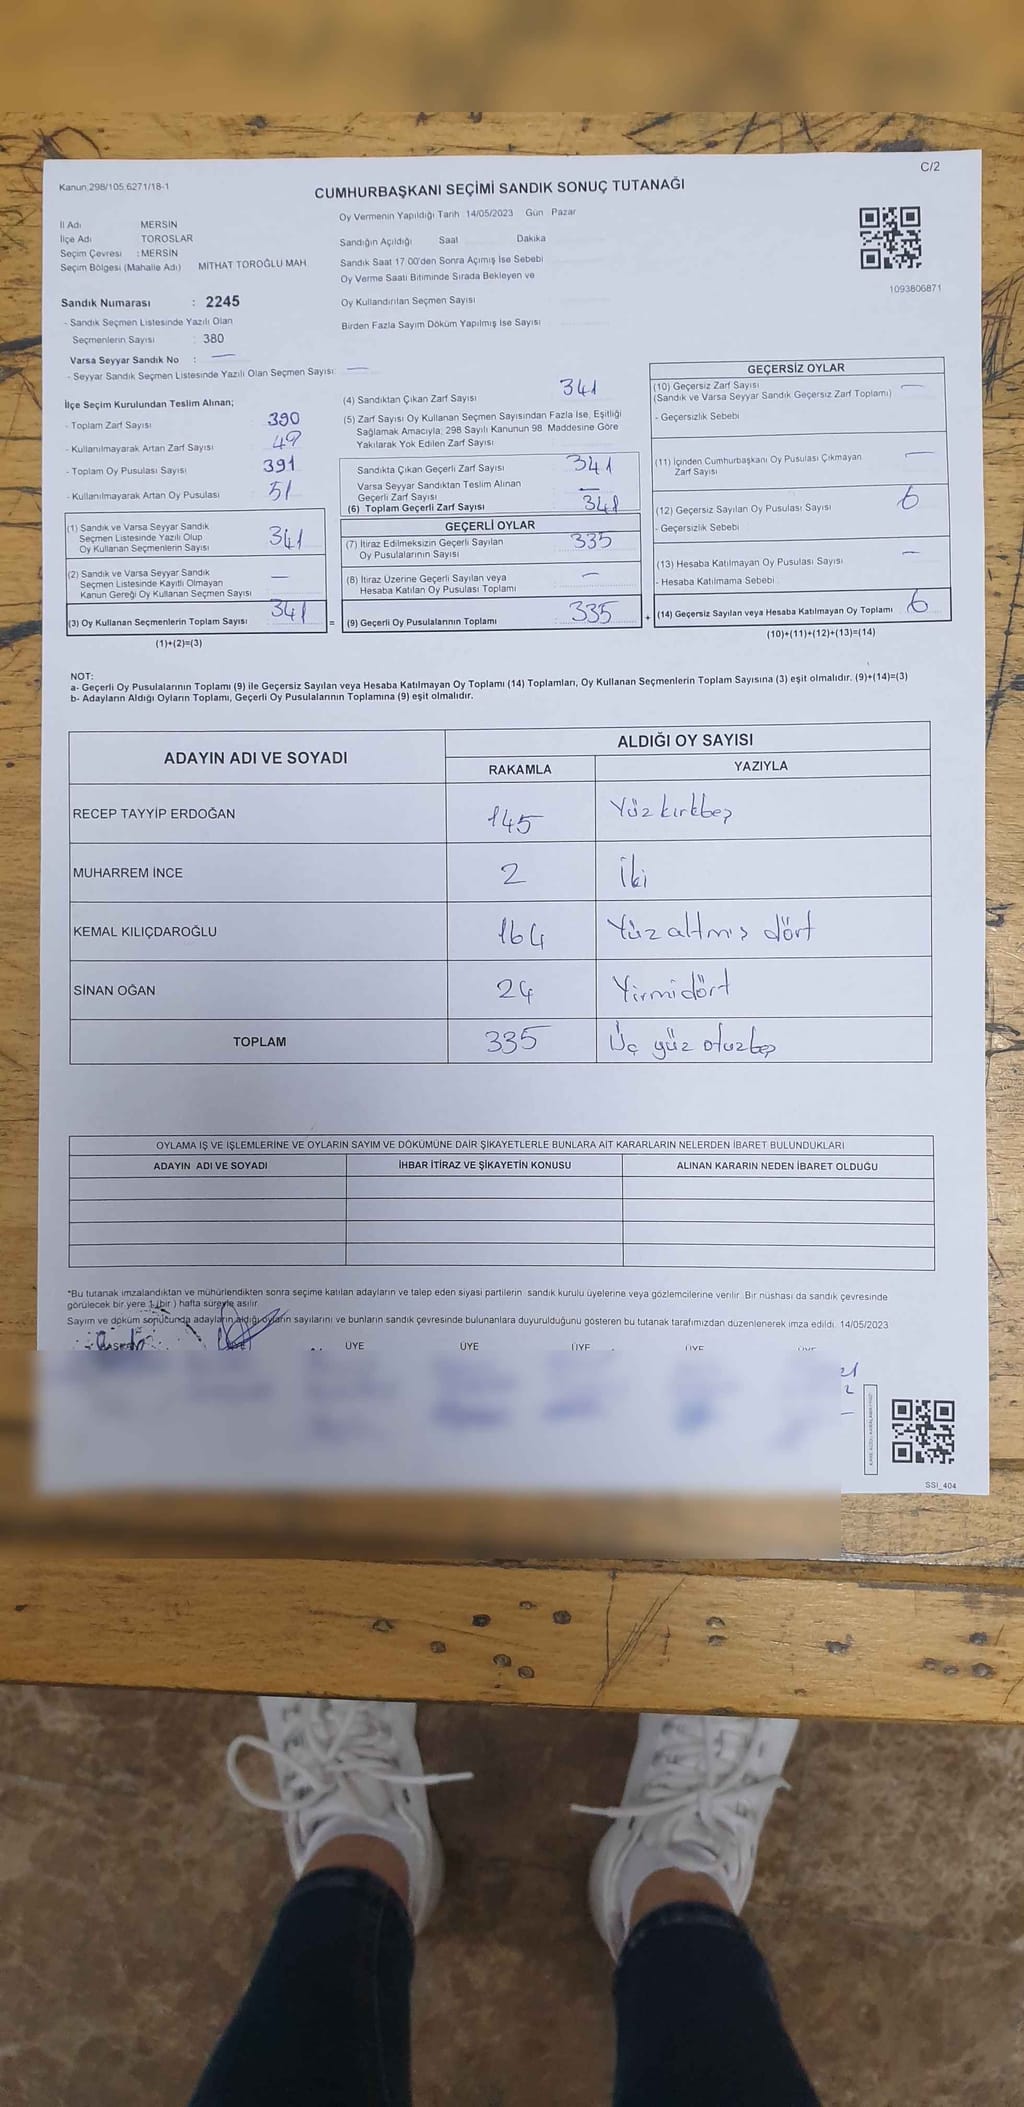 C/2
Kanun.298/105.6271/18-1
CUMHURBAŞKANI SEÇİMİ SANDIK SONUÇ TUTANAĞI
İl Adı MERSİN
İlçe Adı TOROSLAR
Seçim Çevresi : MERSİN
Seçim Bölgesi (Mahalle Adı) MİTHAT TOROĞLU MAH.
Oy Vermenin Yapıldığı Tarih 14/05/2023 Gün Pazar
Sandığın Açıldığı Saat Dakika
Sandık Saat 17.00'den Sonra Açımış İse Sebebi
Oy Verme Saati Bitiminde Sırada Bekleyen ve
Oy Kullandırılan Seçmen Sayısı
Birden Fazla Sayım Döküm Yapılmış İse Sayısı
1093806871
Sandık Numarası : 2245
- Sandık Seçmen Listesinde Yazılı Olan
Seçmenlerin Sayısı : 380
Varsa Seyyar Sandık No : —
- Seyyar Sandık Seçmen Listesinde Yazılı Olan Seçmen Sayısı: —
İlçe Seçim Kurulundan Teslim Alınan;
- Toplam Zarf Sayısı 390
- Kullanılmayarak Artan Zarf Sayısı 49
- Toplam Oy Pusulası Sayısı 391
- Kullanılmayarak Artan Oy Pusulası 51
(1) Sandık ve Varsa Seyyar Sandık
Seçmen Listesinde Yazılı Olup
Oy Kullanan Seçmenlerin Sayısı 341
(2) Sandık ve Varsa Seyyar Sandık
Seçmen Listesinde Kayıtlı Olmayan
Kanun Gereği Oy Kullanan Seçmen Sayısı —
(3) Oy Kullanan Seçmenlerin Toplam Sayısı 341 =
(1)+(2)=(3)
(4) Sandıktan Çıkan Zarf Sayısı 341
(5) Zarf Sayısı Oy Kullanan Seçmen Sayısından Fazla İse, Eşitliği
Sağlamak Amacıyla; 298 Sayılı Kanunun 98. Maddesine Göre
Yakılarak Yok Edilen Zarf Sayısı
Sandıkta Çıkan Geçerli Zarf Sayısı 341
Varsa Seyyar Sandıktan Teslim Alınan
Geçerli Zarf Sayısı —
(6) Toplam Geçerli Zarf Sayısı 341
GEÇERLİ OYLAR
(7) İtiraz Edilmeksizin Geçerli Sayılan
Oy Pusulalarının Sayısı 335
(8) İtiraz Üzerine Geçerli Sayılan veya
Hesaba Katılan Oy Pusulası Toplamı —
(9) Geçerli Oy Pusulalarının Toplamı 335 +
GEÇERSİZ OYLAR
(10) Geçersiz Zarf Sayısı —
(Sandık ve Varsa Seyyar Sandık Geçersiz Zarf Toplamı)
- Geçersizlik Sebebi
(11) İçinden Cumhurbaşkanı Oy Pusulası Çıkmayan
Zarf Sayısı —
(12) Geçersiz Sayılan Oy Pusulası Sayısı 6
- Geçersizlik Sebebi
(13) Hesaba Katılmayan Oy Pusulası Sayısı —
- Hesaba Katılmama Sebebi
(14) Geçersiz Sayılan veya Hesaba Katılmayan Oy Toplamı 6
(10)+(11)+(12)+(13)=(14)
NOT:
a- Geçerli Oy Pusulalarının Toplamı (9) ile Geçersiz Sayılan veya Hesaba Katılmayan Oy Toplamı (14) Toplamları, Oy Kullanan Seçmenlerin Toplam Sayısına (3) eşit olmalıdır. (9)+(14)=(3)
b- Adayların Aldığı Oyların Toplamı, Geçerli Oy Pusulalarının Toplamına (9) eşit olmalıdır.
ADAYIN ADI VE SOYADI ALDIĞI OY SAYISI
RAKAMLA YAZIYLA
RECEP TAYYİP ERDOĞAN 145 Yüz kırkbeş
MUHARREM İNCE 2 İki
KEMAL KILIÇDAROĞLU 164 Yüz altmış dört
SİNAN OĞAN 24 Yirmidört
TOPLAM 335 Üç yüz otuzbeş
OYLAMA İŞ VE İŞLEMLERİNE VE OYLARIN SAYIM VE DÖKÜMÜNE DAİR ŞİKAYETLERLE BUNLARA AİT KARARLARIN NELERDEN İBARET BULUNDUKLARI
ADAYIN ADI VE SOYADI İHBAR İTİRAZ VE ŞİKAYETİN KONUSU ALINAN KARARIN NEDEN İBARET OLDUĞU
*Bu tutanak imzalandıktan ve mühürlendikten sonra seçime katılan adayların ve talep eden siyasi partilerin sandık kurulu üyelerine veya gözlemcilerine verilir. Bir nüshası da sandık çevresinde
görülecek bir yere 1 (bir ) hafta süreyle asılır.
Sayım ve döküm sonucunda adayların aldığı oyların sayılarını ve bunların sandık çevresinde bulunanlara duyurulduğunu gösteren bu tutanak tarafımızdan düzenlenerek imza edildi. 14/05/2023
ÜYE ÜYE ÜYE ÜYE
SSI_404